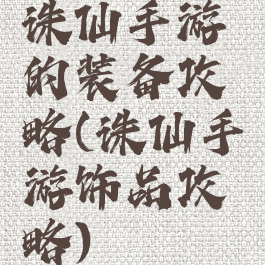 诛仙手游
的装备攻
略(诛仙手
游饰品攻
略)